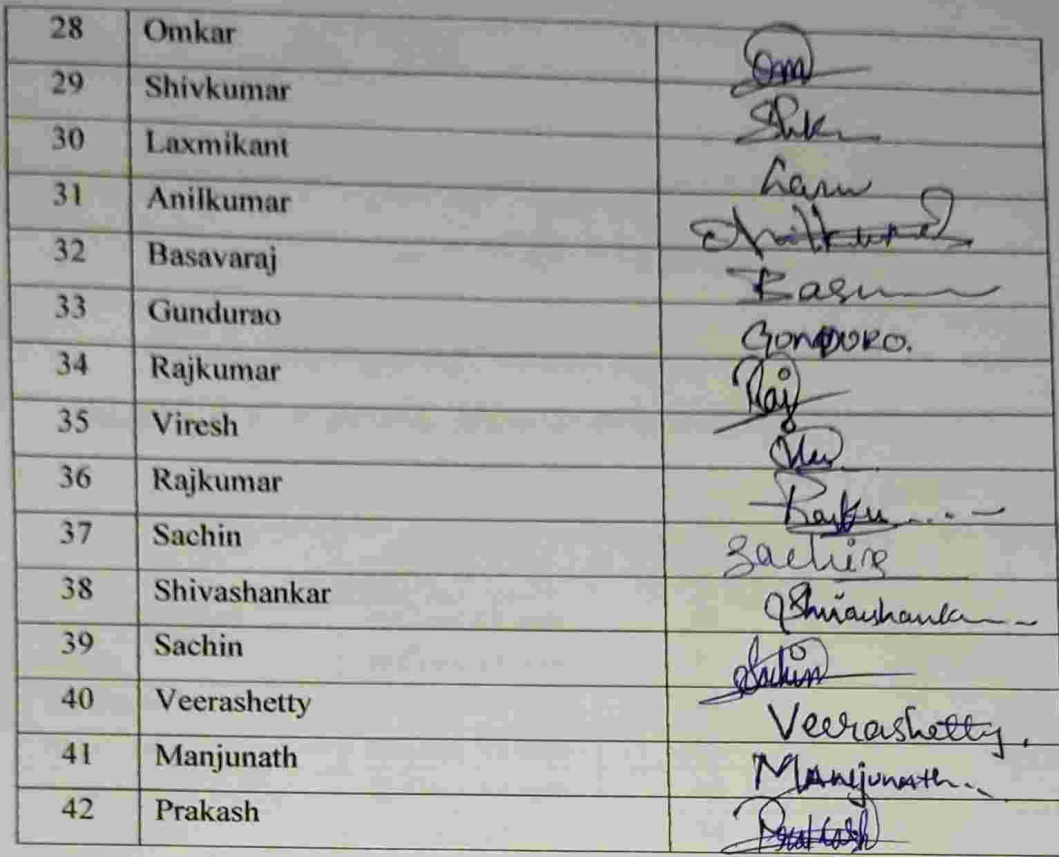 28 Omkar Om
29 Shivkumar
30 Laxmikant
31 Anilkumar Anilkumar
32 Basavaraj Basu
33 Gundurao GONDURO.
34 Rajkumar Raj
35 Viresh
36 Rajkumar Rajku
37 Sachin Sachin
38 Shivashankar
39 Sachin Sachin
40 Veerashetty Veerashetty.
41 Manjunath Manjunath..
42 Prakash Prakash